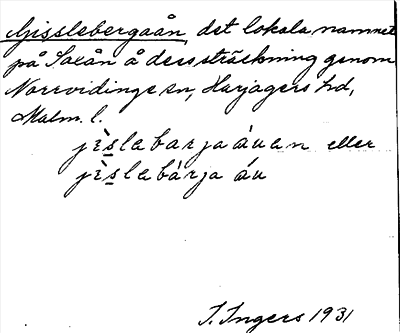 Gisslebergaån, det lokala namnet
på Saxån å dess sträckning genom
Norrvidinge sn, Harjagers hd,
Malm. l.
jɪ̀slabarja áuen eller
jɪ̀slabárja áu
I. Ingers 1931